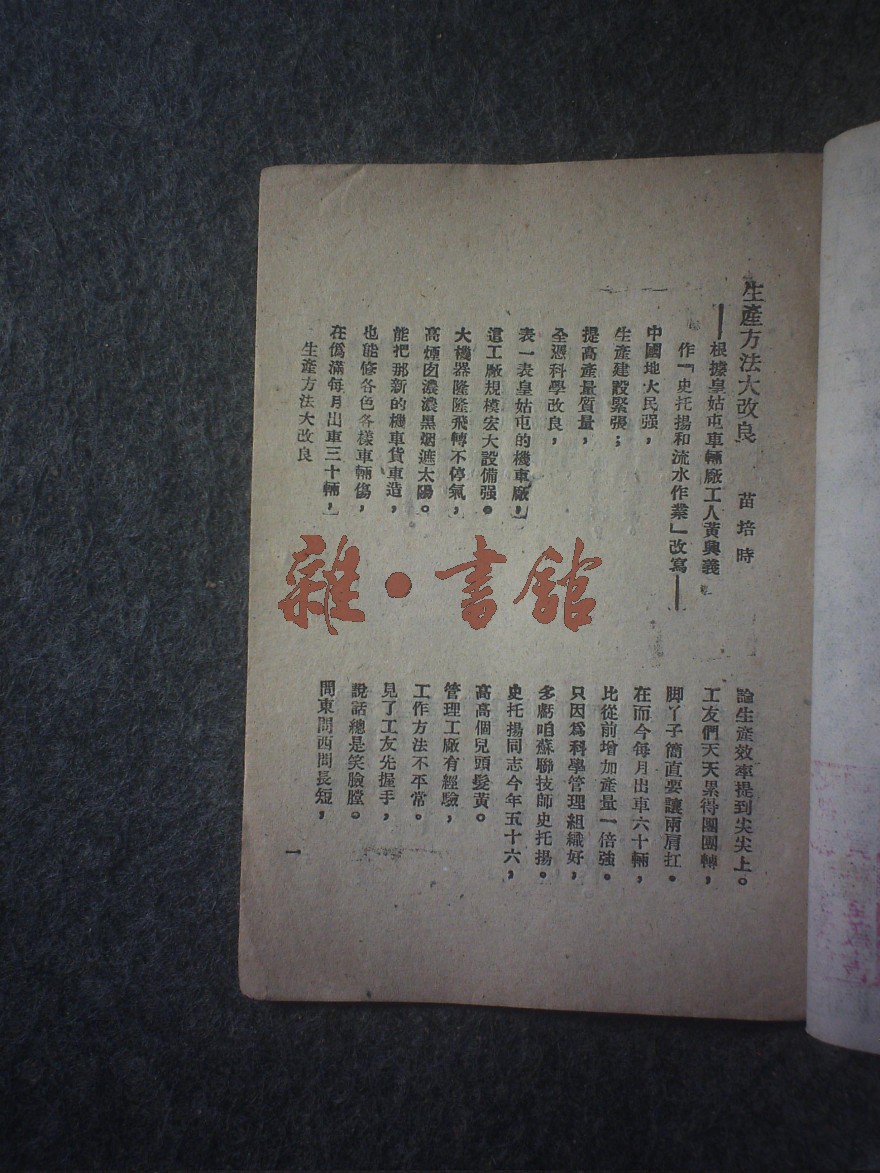 生產方法大改良
苗培時
——根據皇姑屯車輛廠工人黃興義
作「史托揚和流水作業」改寫——
中國地大民强，
生產建設緊張；
提高產量質量，
全憑科學改良，
表一表皇姑屯的機車廠，
這工廠規模宏大設備强。
大機器隆隆飛轉不停氣，
高煙囱濃濃黑烟遮太陽。
能把那新的機車貨車造，
也能修各色各樣車輛傷，
在僞滿每月出車三十輛，
論生產效率提到尖尖上。
工友們天天累得團團轉，
脚丫子簡直要讓兩肩扛。
在而今每月出車六十輛，
比從前增加產量一倍強。
只因爲科學管理組織好，
多虧咱蘇聯技師史托揚。
史托揚同志今年五十六，
高高個兒頭髮黃。
管理工廠有經驗，
工作方法不平常。
見了工友先握手，
說話總是笑臉膛。
問東問西問長短，
生產方法大改良
一
雜·書館